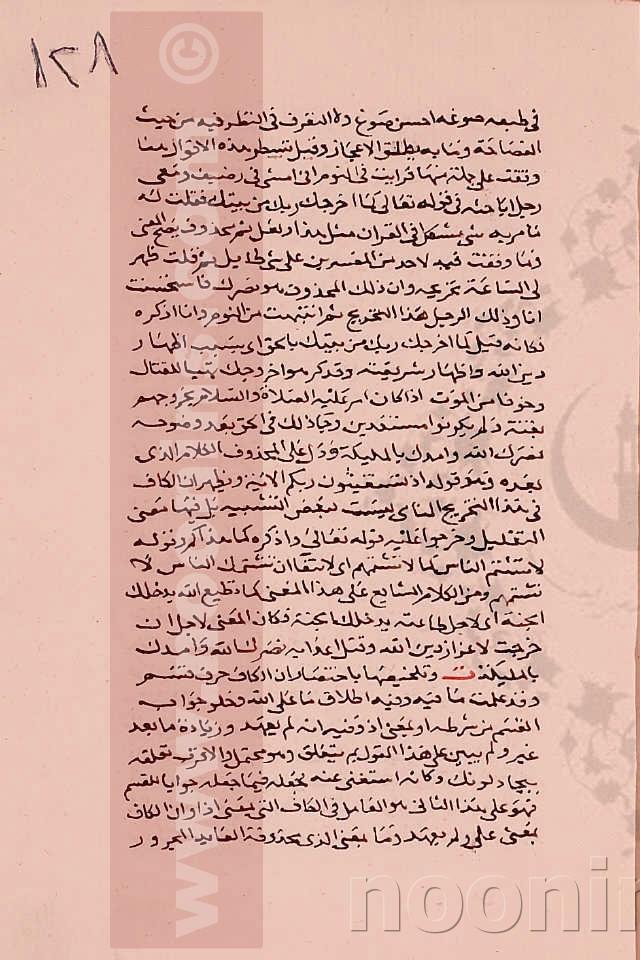 ١٢٨
في طبعه صوغه احسن صوغ وله التصرف في النظر فيه من حيث
الفصاحة وما به يطلق الاعجاز وقبل تسطير هذه الاقوال هنا
وقفت على جملة منها فرايت في النوم اني امشي في رصيف ومعي
رجل اباحثه في قوله تعالى كما اخرجك ربك من بيتك فقلت له
ما مر به شي مشكل في القران مثل هذا ولعل ثم محذوف يصح المعنى
وما وقفت فيه لاحد من المفسرين على شي طايل ثم قلت ظهر
لي الساعة تخريجه وان ذلك المحذوف هو نصرك فاستحسنت
انا وذلك الرجل هذا التخريج ثم انتبهت من النوم وانا اذكره
فكانه قيل كما اخرجك ربك من بيتك بالحق اي بسبب اظهار
دين الله واظهار شريعته وقد كرهوا خروجك تهيبا للقتال
وخوفا من الموت اذ كان امر عليه الصلاة والسلام بخروجهم
بغتة ولم يكونوا مستعدين وجادلوك في الحق بعد وضوحه
نصرك الله وامدك بالمليكة ودل على المحذوف الكلام الذي
بعده وهو قوله اذ تستغيثون ربكم الاية ويظهر ان الكاف
في هذا التخريج ليست لمحض التشبيه بل فيها معنى
التعليل وخرجوا عليه قوله تعالى واذكروه كما هداكم وقوله
لا تشتم الناس كما لا تشتم اي لانتقاء ان تشتمك الناس لا
تشتمهم ومن الكلام الشايع على هذا المعنى كما تطيع الله يدخلك
الجنة اي لاجل طاعته يدخلك الجنة فكان المعنى لاجل ان
خرجت لاعزاز دين الله وقتل اعدايه نصرك الله وامدك
بالمليكة وتلخيصها باختصار ان الكاف حرف قسم
وقد علمت ما فيه وفيه اطلاق ما على الله وخلو جواب
القسم من شرطه او بمعنى اذ وفيه انه لم يعهد وزيادة ما بعد
غير ولم يبين على هذا القول بم يتعلق وهو محتمل والاقرب تعلقه
بيجادلونك وكانه استغنى عنه بجعله فيما جعله جوابا للقسم
فهو على هذا الثاني هو العامل في الكاف التي بمعنى اذ او ان الكاف
بمعنى على ولم يعهد وما بمعنى الذي محذوفة العايد المجرور
www.noonin